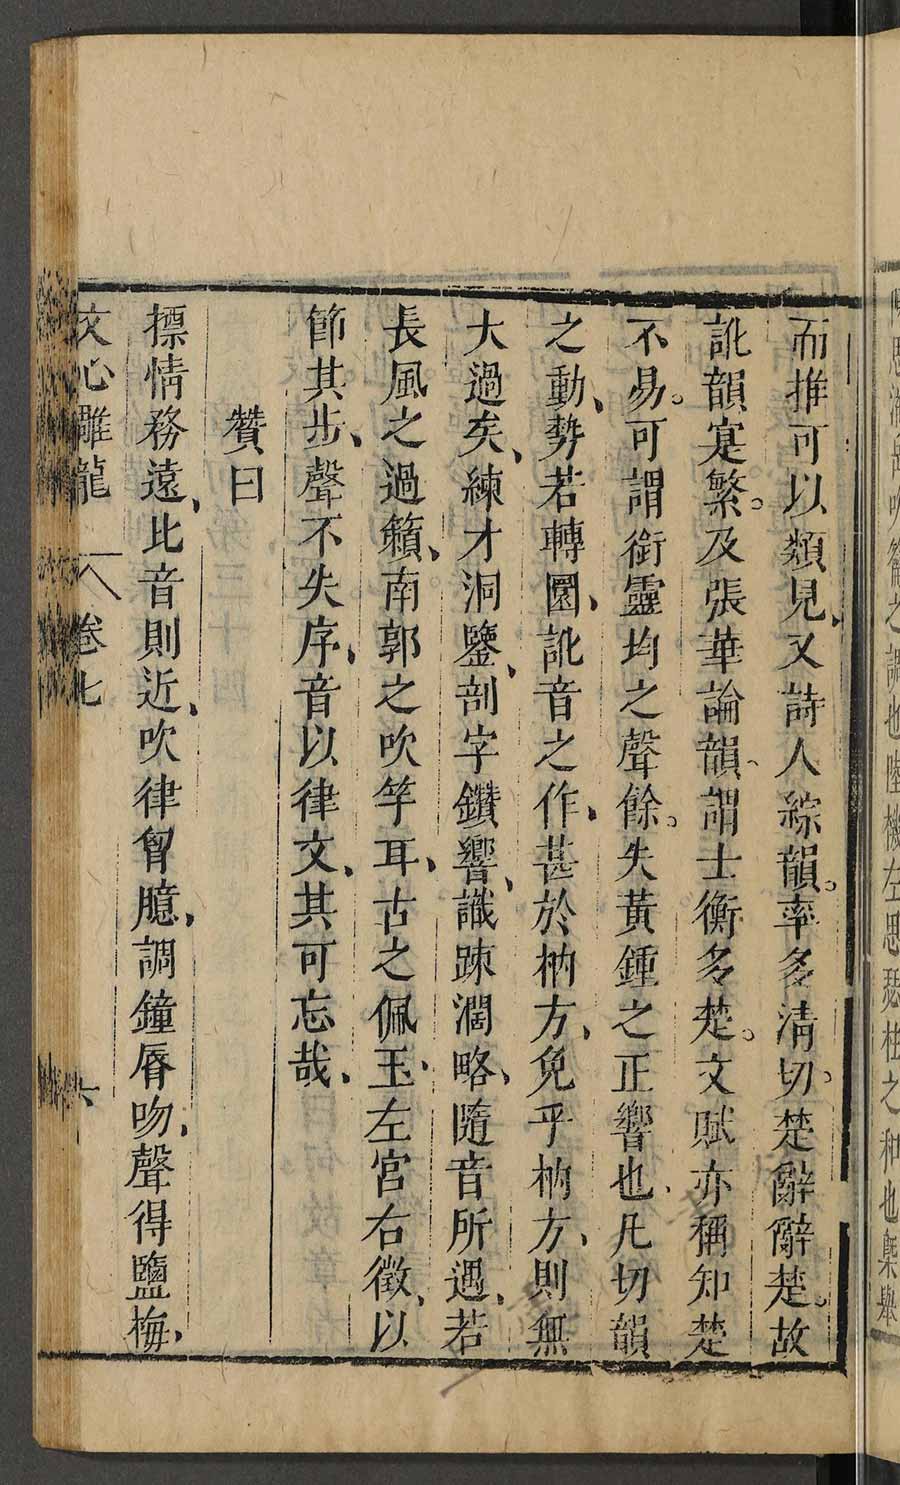 思潘岳吹籥之調也陸機左思瑟柱之和也槩舉
而推可以類見、又詩人綜韻。率多清切。楚辭辭楚。故
訛韻寔繁。及張華論韻、謂士衡多楚。文賦亦稱知楚
不易。可謂銜靈均之聲餘。失黃鍾之正響也、凡切韻
之動、勢若轉圜、訛音之作、甚於枘方、免乎枘方、則無
大過矣、練才洞鑒、剖字鑽響、識踈濶略、隨音所遇、若
長風之過籟、南郭之吹竽耳、古之佩玉、左宮右徵、以
節其步、聲不失序、音以律文、其可忘哉、
贊曰
標情務遠、比音則近、吹律胷臆、調鐘脣吻、聲得鹽梅、
文心雕龍 卷七 六